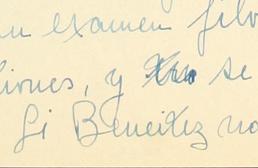 un examen filo
iones, y se
Si Beneitez no